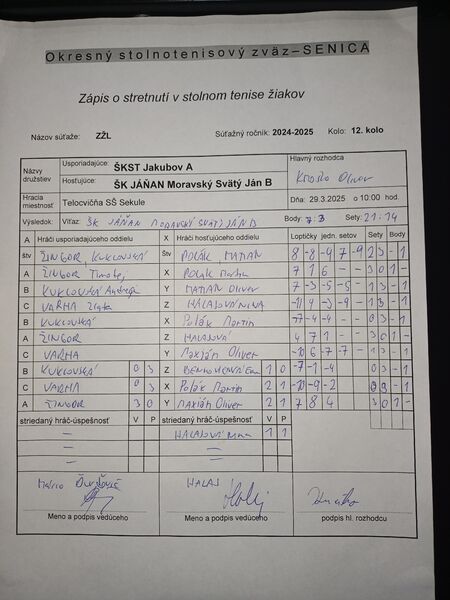 Okresný stolnotenisový zväz–SENICA
Zápis o stretnutí v stolnom tenise žiakov
Názov súťaže: ZŽL Súťažný ročník: 2024-2025 Kolo: 12. kolo
Názvy družstiev Usporiadajúce: ŠKST Jakubov A Hlavný rozhodca
Hosťujúce: ŠK JÁŇAN Moravský Svätý Ján B
Hracia miestnosť Telocvičňa SŠ Sekule Dňa: 29.3.2025 o 10:00 hod.
Výsledok: Víťaz: ŠK JÁŇAN MORAVSKÝ SVÄTÝ JÁN B Body: 7:3 Sety: 21:14
A Hráči usporiadajúceho oddielu X Hráči hosťujúceho oddielu Loptičky jedn. setov Sety Body
štv ŽINGOR, KUKLOVSKÁ Štv POLÁK, MATIÁN 8 -8 -9 7 -9 2 3 - 1
A ŽINGOR Timotej X POLÁK Martin 7 1 6 - - 3 0 1 -
B KUKLOVSKÁ Andrea Y Oliver 7 -3 -5 -5 - 1 3 - 1
C VARHA Z HALAJOVÁ NINA 9 -3 -9 - 1 3 - 1
B KUKLOVSKÁ X Polák Martin -7 -4 -4 - - 0 3 - 1
A ŽINGOR Z HALAJOVÁ 4 7 1 - - 3 0 1 -
C VARHA Y Oliver -10 6 -7 -7 - 1 3 - 1
B KUKLOVSKÁ 0 3 Z 1 0 -7 -1 -4 - - 0 3 - 1
C VARHA 0 3 X Polák Martin 2 1 -10 -9 -2 - - 0 3 - 1
A ŽINGOR 3 0 Y Oliver 2 1 7 8 4 3 0 1 -
striedaný hráč-úspešnosť V P striedaný hráč-úspešnosť V P
HALAJOVÁ Nina 1 1
HALAJ
Meno a podpis vedúceho Meno a podpis vedúceho podpis hl. rozhodcu